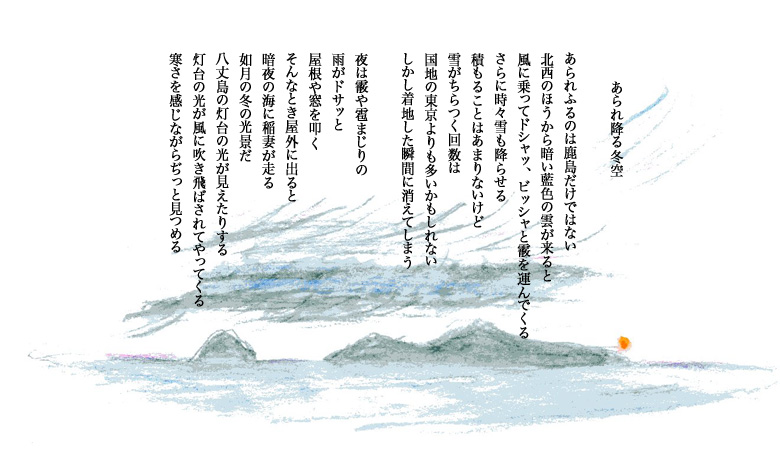 あられ降る冬空
あられふるのは鹿島だけではない
北西のほうから暗い藍色の雲が来ると
風に乗ってドシャッ、ビッシャと霰を運んでくる
さらに時々雪も降らせる
積もることはあまりないけど
雪がちらつく回数は
国地の東京よりも多いかもしれない
しかし着地した瞬間に消えてしまう
夜は霰や雹まじりの
雨がドサッと
屋根や窓を叩く
そんなとき屋外に出ると
暗夜の海に稲妻が走る
如月の冬の光景だ
八丈島の灯台の光が見えたりする
灯台の光が風に吹き飛ばされてやってくる
寒さを感じながらぢっと見つめる